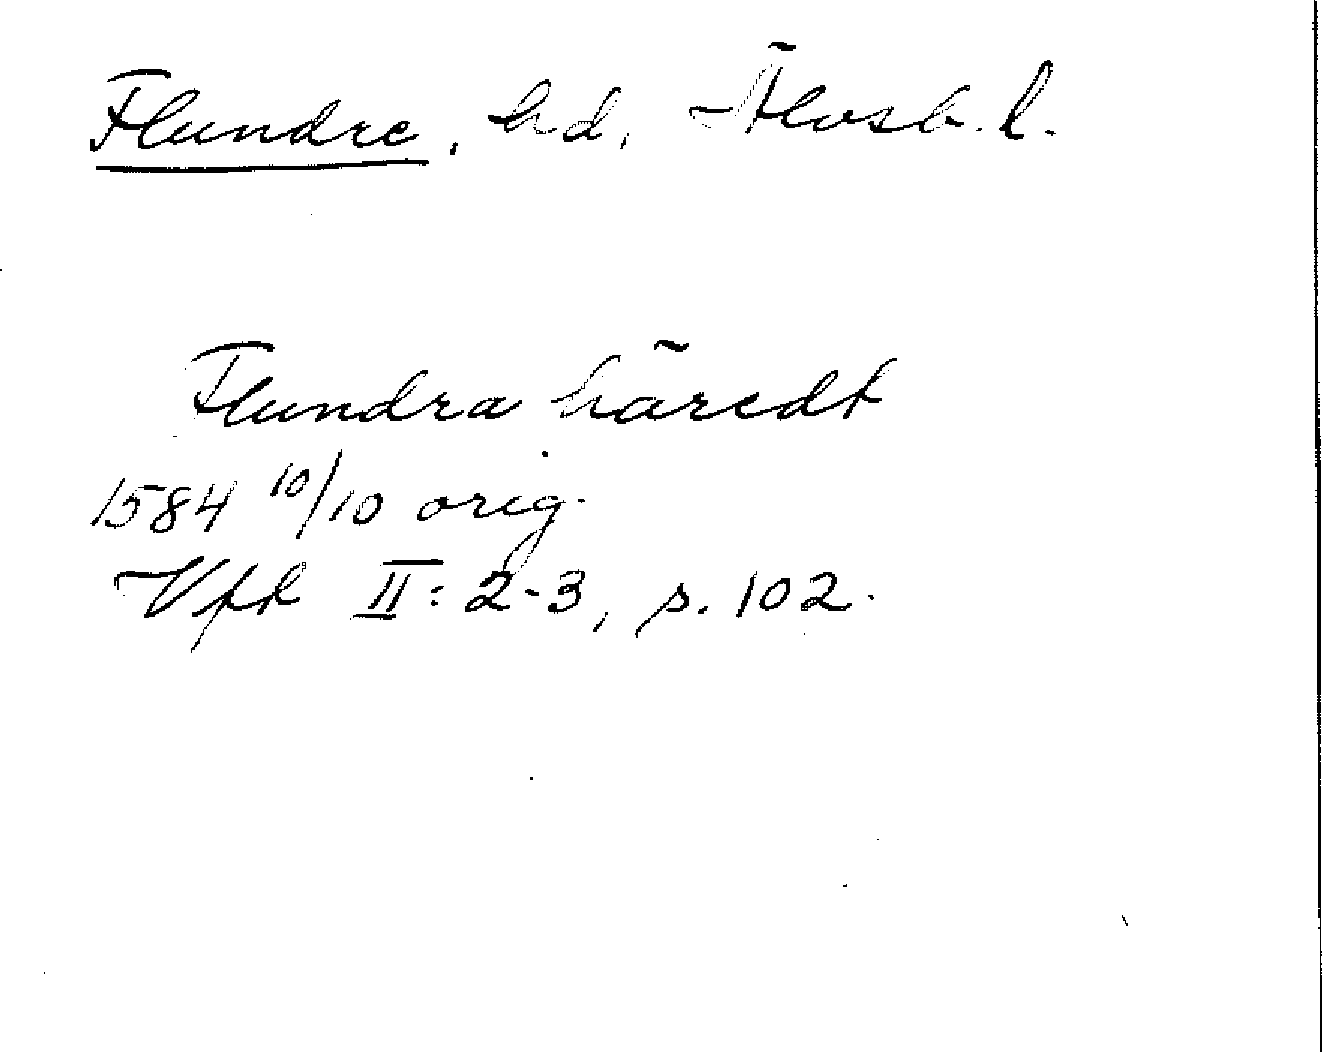 Flundre, hd, Älvsb. l.
Flundra häredt
1584 10/10 orig.
Vfk II: 2-3, s. 102.